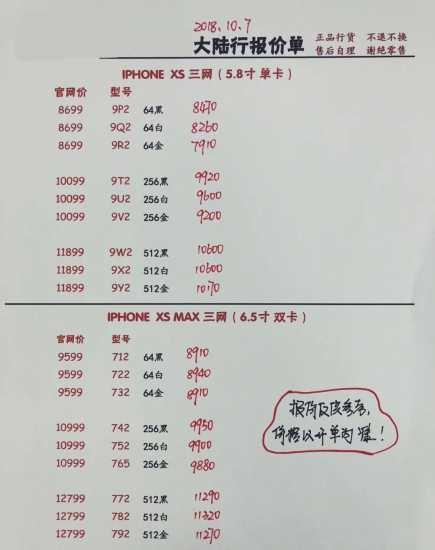 2018.10.7
大陆行报价单
正品行货 不退不换
售后自理 谢绝零售
IPHONE XS 三网(5.8寸 单卡)
官网价 型号
8699 9P2 64黑 8470
8699 9Q2 64白 8260
8699 9R2 64金 7910
10099 9T2 256黑 9920
10099 9U2 256白 9600
10099 9V2 256金 9200
11899 9W2 512黑 10600
11899 9X2 512白 10600
11899 9Y2 512金 10170
IPHONE XS MAX 三网(6.5寸 双卡)
官网价 型号
9599 712 64黑 8910
9599 722 64白 8940
9599 732 64金 8910
10999 742 256黑 9950
10999 752 256白 9900
10999 765 256金 9880
12799 772 512黑 11290
12799 782 512白 11320
12799 792 512金 11270
报价仅供参考,
价格以开单为准!